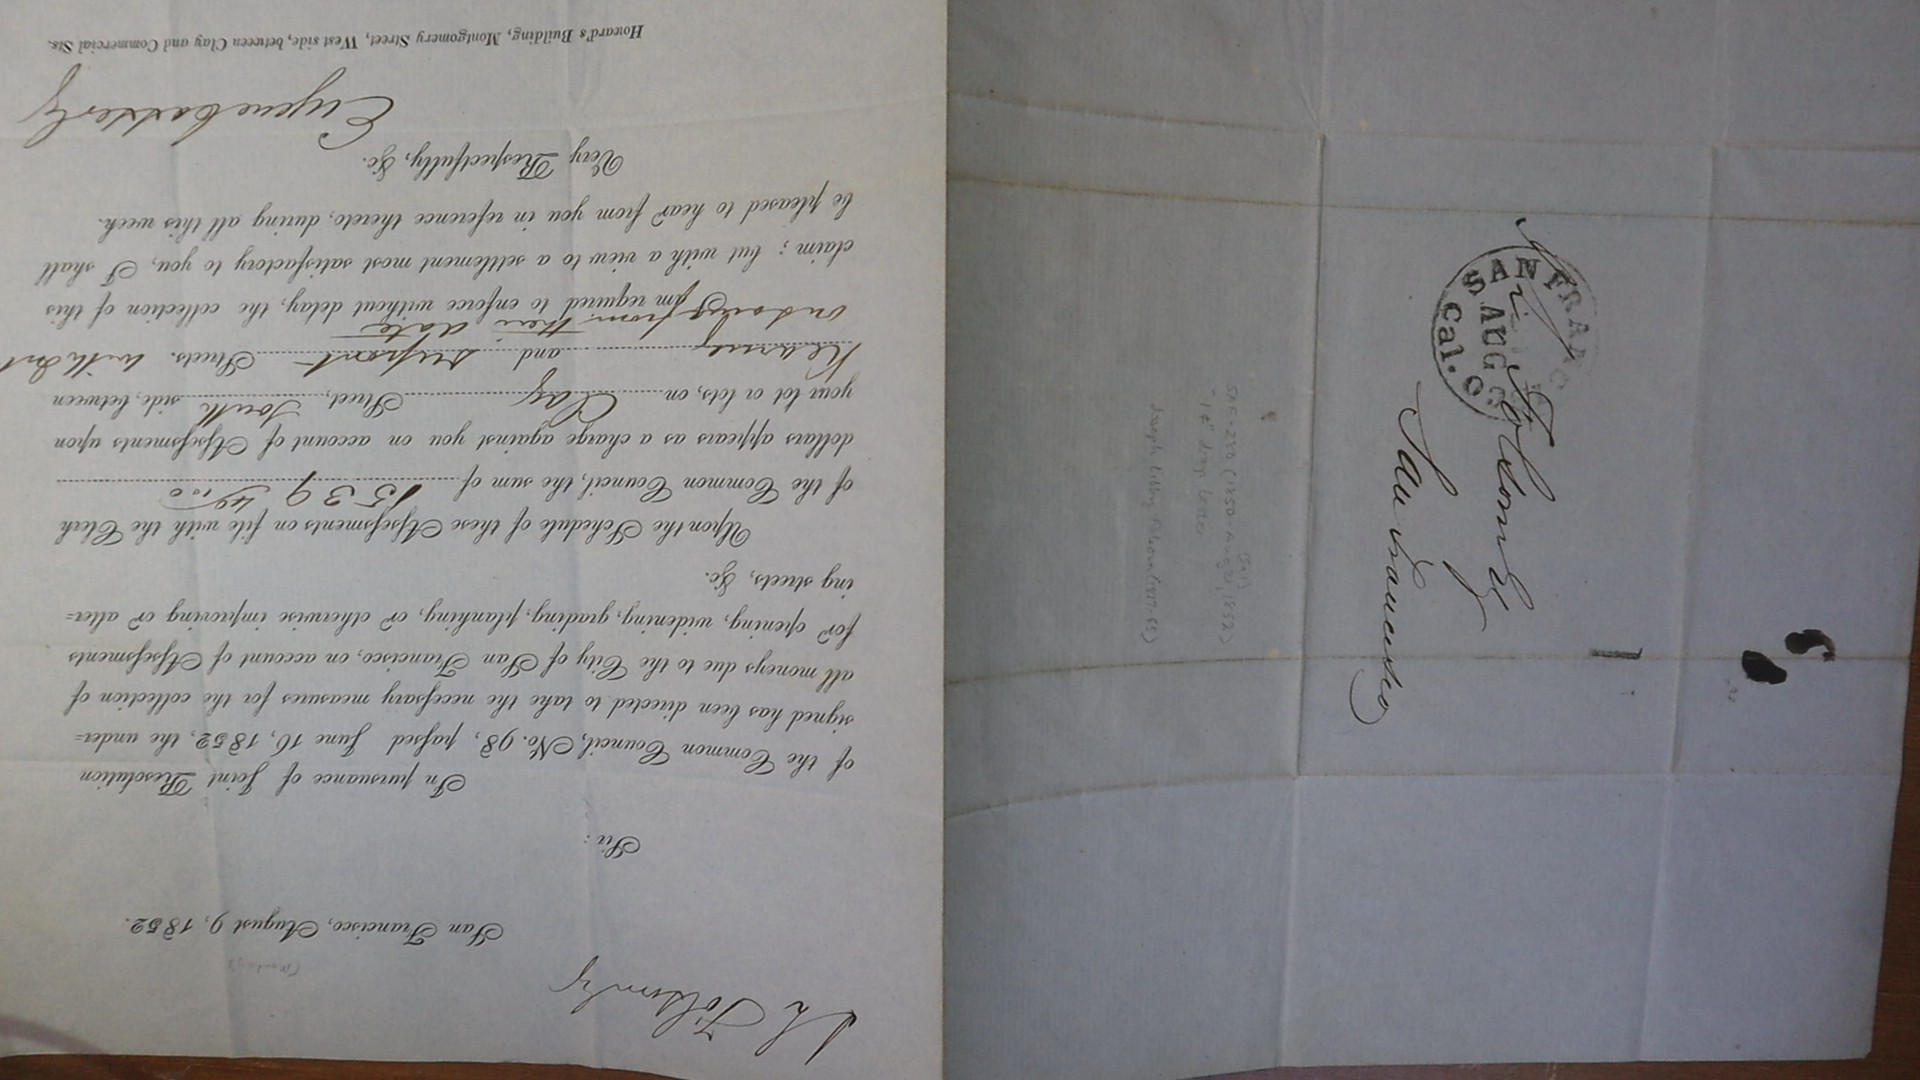 Mr Folsom
(Monday)
San Francisco, August 9, 1852.
Sir:
In pursuance of Joint Resolution
of the Common Council, No. 98, passed June 16, 1852, the under=
signed has been directed to take the necessary measures for the collection of
all moneys due to the City of San Francisco, on account of Assessments
for opening, widening, grading, planking, or otherwise improving or alter=
ing streets, &c.
Upon the Schedule of these Assessments on file with the Clerk
of the Common Council, the sum of 1539 49/100
dollars appears as a charge against you on account of Assessments upon
your lot or lots, on Clay Street, South side, between
Kearny and Dupont Streets. with Int
from their date
I am required to enforce without delay, the collection of this
claim; but with a view to a settlement most satisfactory to you, I shall
be pleased to hear from you in reference thereto, during all this week.
Very Respectfully, &c.
Eugene Casserly
Howard's Building, Montgomery Street, West side, between Clay and Commercial Sts.
SAN FRANCISCO
AUG
Cal.
Folsom
San Francisco
(1850-Aug 1852)
drop letter
Joseph Libby Folsom (1817-65)